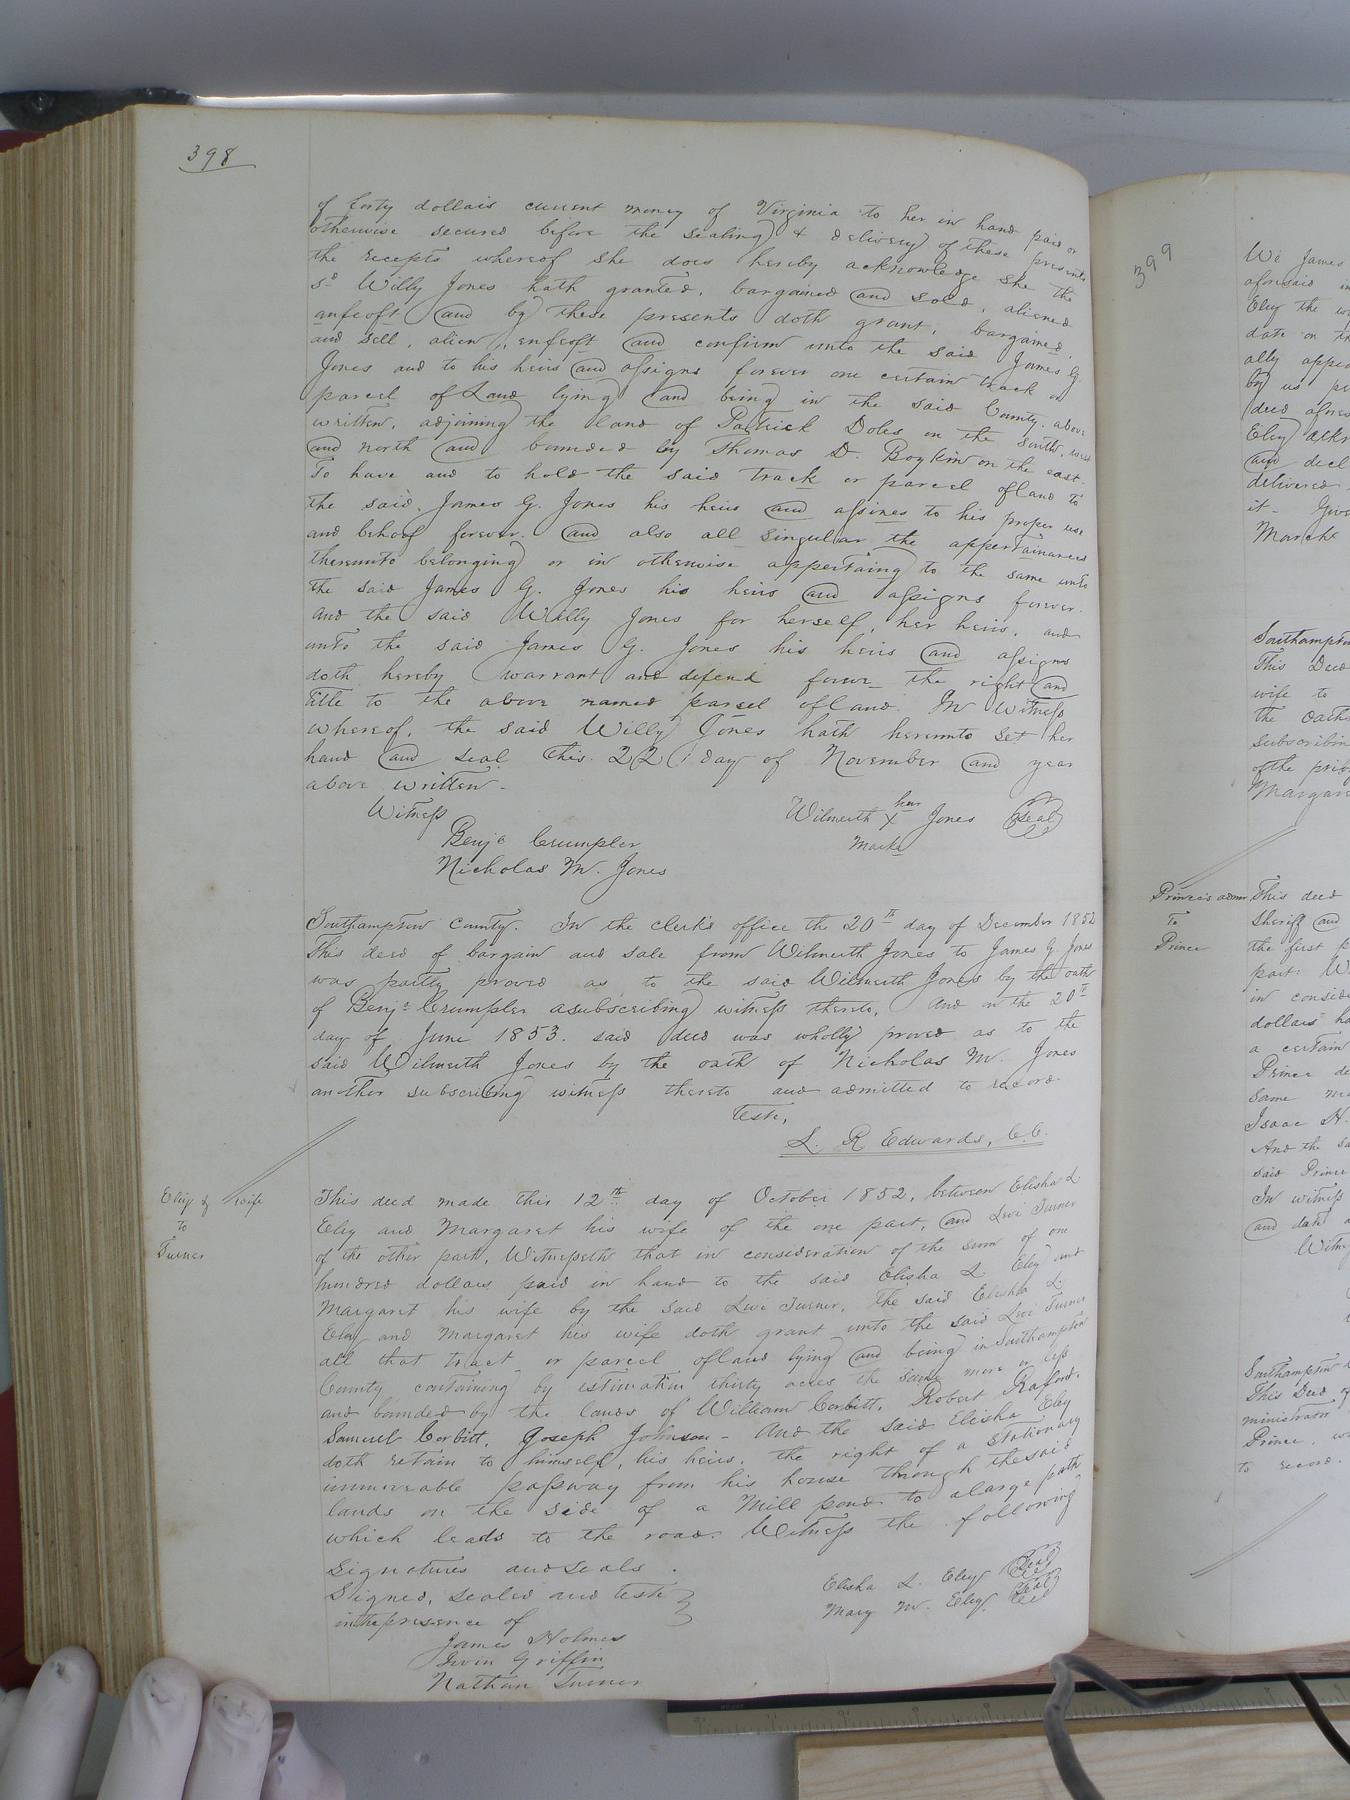 398
of forty dollars current money of Virginia to her in hand paid or
otherwise secured before the sealing & delivery of these presents
the receipts whereof she does hereby acknowledge she the
sd Willy Jones hath granted, bargained and sold, aliened
enfeoft and by these presents doth grant, bargained,
and sell, alien, enfeoft and confirm unto the said James G.
Jones and to his heirs and assigns forever one certain track or
parcel of Land lying and being in the said County, above
written, adjoining the land of Patrick Doles on the South, west
and north and bounded by Thomas D. Boykin on the east.
To have and to hold the said track or parcel of land to
the said, James G. Jones his heirs and assines to his proper use
and behoof forever. and also all singular the appertainances
thereunto belonging or in otherwise appertaing to the same unto
the said James G. Jones his heirs and assigns forever.
and the said Willy Jones for herself, her heirs, and
unto the said James G. Jones his heirs and assigns
doth hereby warrant and defend the right and
title to the above named parcel of land. In Witness
whereof, the said Willy Jones hath hereunto set her
hand and seal this 22 day of November and year
above written.
Witness
Wilmuth her X Jones Seal
mark
Benja Crumpler
Nicholas M. Jones
Southampton County. In the clerk's office the 20th day of December 1852
This deed of bargain and sale from Wilmuth Jones to James G. Jones
was partly proved as to the said Wilmuth Jones by the oath
of Benja Crumpler a subscribing witness thereto, And on the 20th
day of June 1853. said deed was wholly proved as to the
said Wilmuth Jones by the oath of Nicholas M. Jones
another subscribing witness thereto and admitted to record.
Teste,
L. R. Edwards, C.C.
Eley & wife
to
Turner
This deed made this 12th day of October 1852, between Elisha L
Eley and Margaret his wife of the one part, and Levi Turner
of the other part, Witnesseth that in consideration of the sum of one
hundred dollars paid in hand to the said Elisha L Eley and
Margaret his wife by the said Levi Turner, the said Elisha L.
Eley and Margaret his wife doth grant unto the said Levi Turner
all that tract or parcel of land lying and being in Southampton
County containing by estimation thirty acres the same more or less
and bounded by the lands of William Corbitt, Robert
Samuel Corbitt, Joseph Johnson - And the said Elisha Eley
doth retain to himself, his heirs, the right of a stationary
immoveable passway from his house through the said
lands on the side of a Mill pond to a large path
which leads to the road. Witness the following
signatures and seals.
Signed, sealed and teste
in the presence of
Elisha L. Eley Seal
Mary M. Eley Seal
James Holmes
Irvin Griffin
Nathan Turner
399
We James
aforesaid in
Eley the
date on
ally
by us
deed
Eley
and decl
delivered
it - Give
March
Southampton
This Deed
wife to
the oath
subscribin
of the
Margare
Prince's admr
To
Prince
This deed
Sheriff and
the first p
part. W
in conside
dollars
a certain
Prince de
Same
Isaac H.
And the
said Prince
In witness
and date
Witne
Southampton
This Deed of
ministrator
Prince, w
to record.